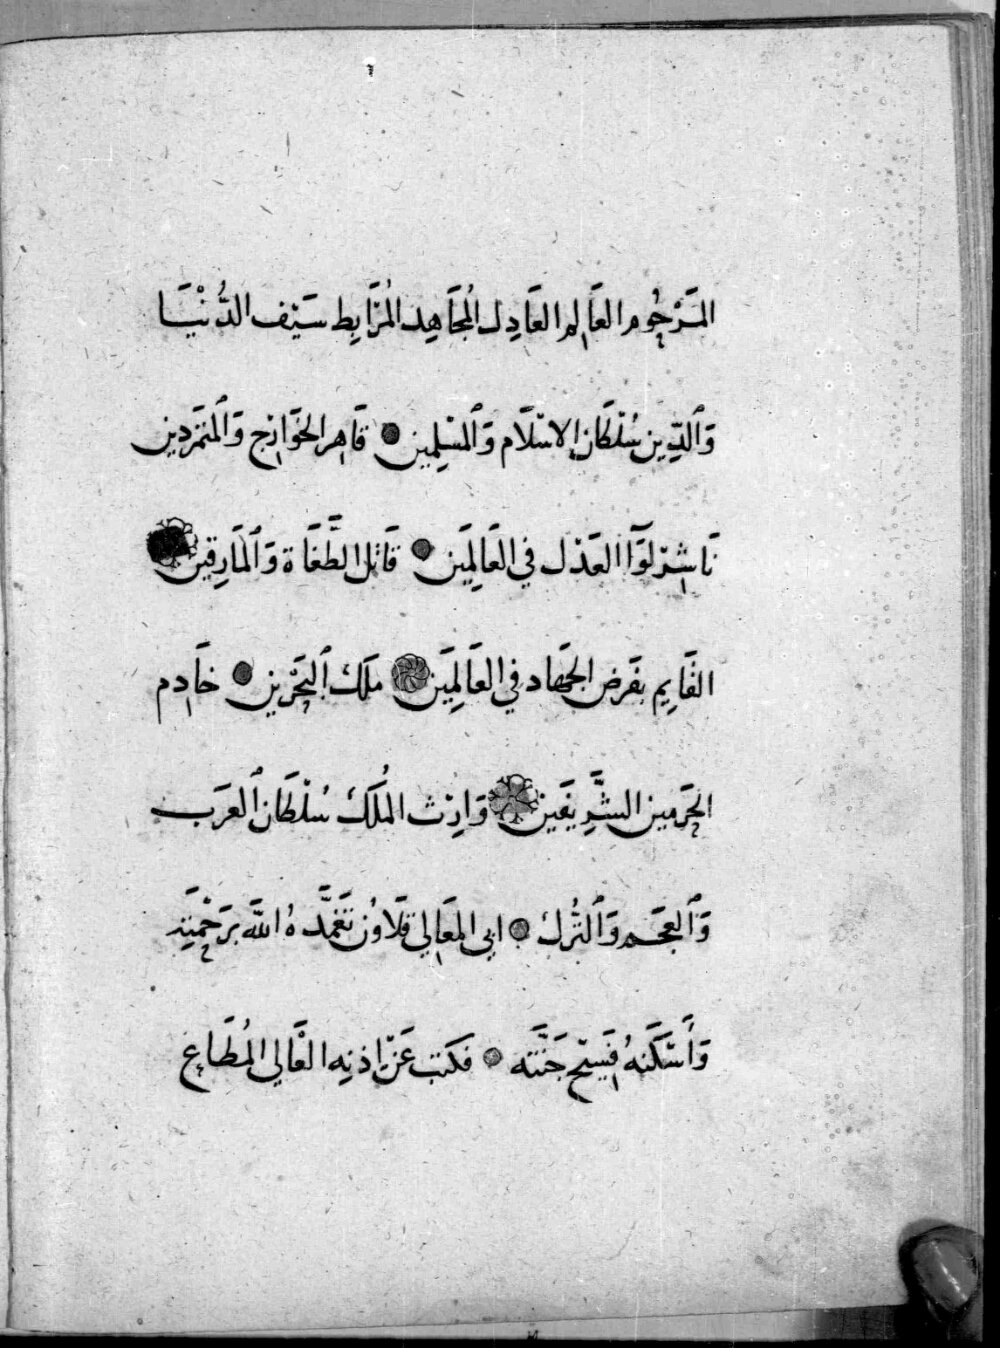 المَرْحُوم العَالِم العَادِل المُجَاهِد المُرَابِط سَيْف الدُّنْيَا
وَالدِّين سُلْطَان الاسْلَام وَالمُسْلِمِين قَاهِر الخَوَارِج وَالمُتَمَرّدِين
نَاشِر لِوَآا العَدْل فِي العَالَمِين قَاتِل الطُّغَاة وَالمَارِقِين
القَايِم بِفَرض الجِهَاد فِي العَالَمِين مَلِك البَحْرَين خَادِم
الحَرَمَين الشَّرِيفَين وَارِث المُلْك سُلْطَان العَرَب
وَالعَجَم وَالتُّرْك ابِي المَعَالِي قَلَاوُن تَغَمَّدَهُ اللَّه بِرَحْمَتِه
وَأَسْكَنَهُ فَسِيح جَنَّتِه فكتب عَن إِذنِه العَالِي المُطَاع